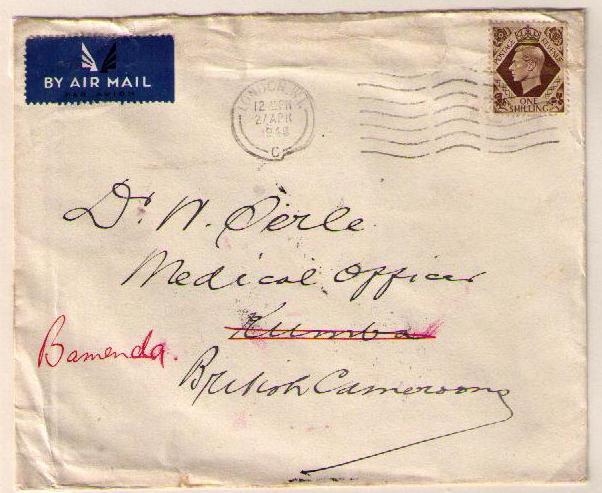 BY AIR MAIL
PAR AVION
POSTAGE REVENUE
ONE SHILLING
LONDON
12 PM
27 APR
C
Dr. W. Serle
Medical Officer
Kumba
Bamenda.
British Cameroons